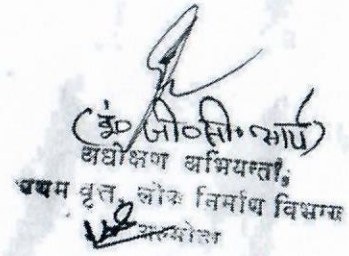 (इं० जी०सी० आर्य)
अधीक्षण अभियन्ता,
प्रथम वृत्त, लोक निर्माण विभाग
अल्मोड़ा